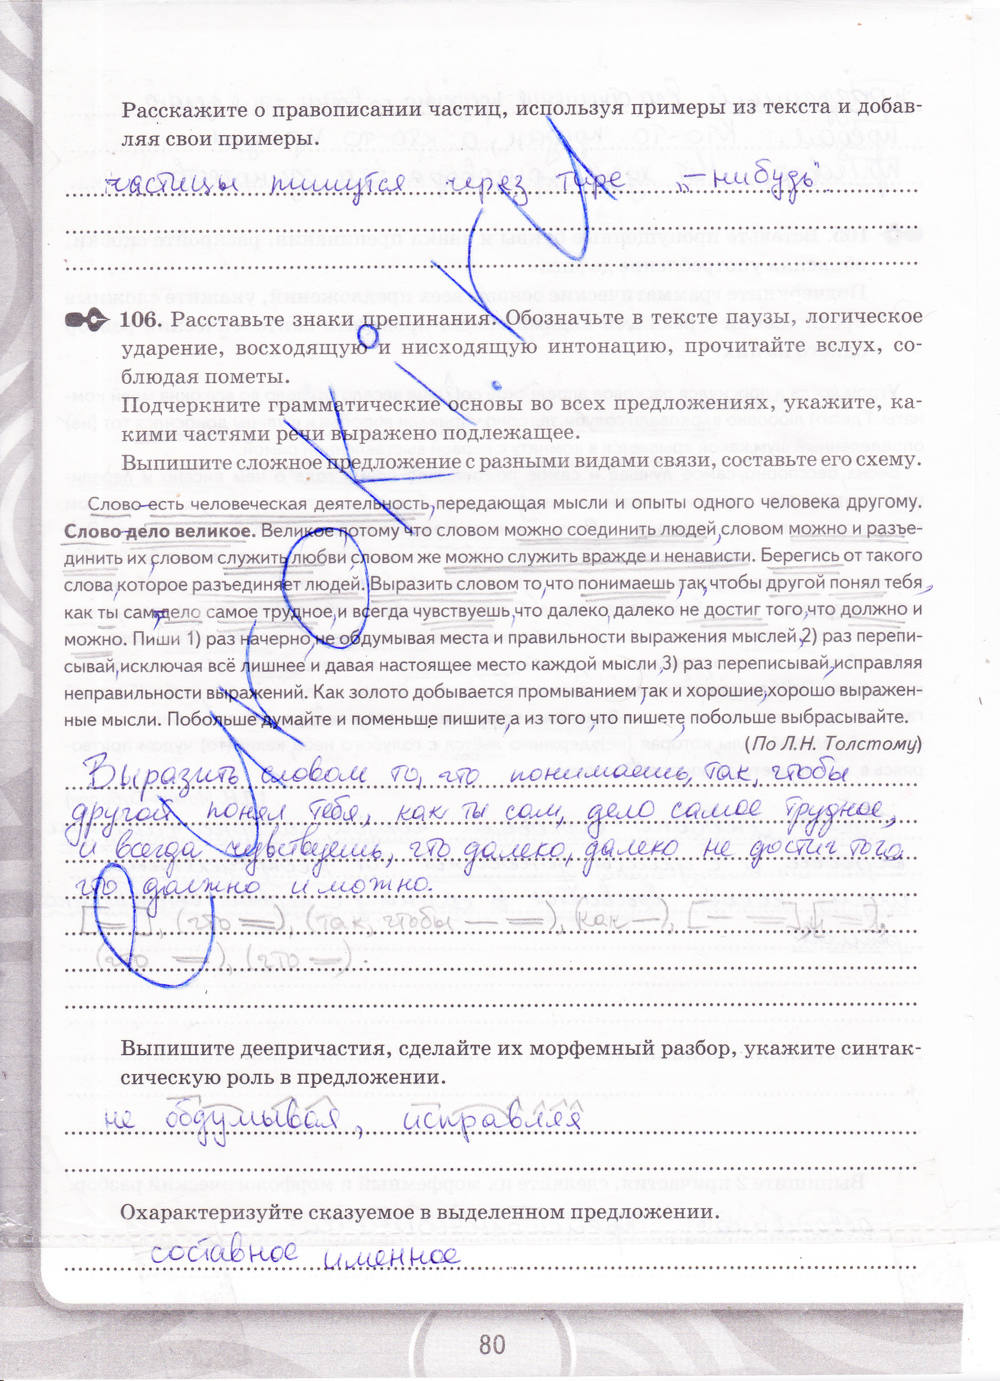 Расскажите о правописании частиц, используя примеры из текста и добав-
ляя свои примеры.
частицы пишутся через тире „-нибудь"
106. Расставьте знаки препинания. Обозначьте в тексте паузы, логическое
ударение, восходящую и нисходящую интонацию, прочитайте вслух, со-
блюдая пометы.
Подчеркните грамматические основы во всех предложениях, укажите, ка-
кими частями речи выражено подлежащее.
Выпишите сложное предложение с разными видами связи, составьте его схему.
Слово–есть человеческая деятельность, передающая мысли и опыты одного человека другому.
Слово–дело великое. Великое потому что словом можно соединить людей, словом можно и разъе-
динить их, словом служить любви словом же можно служить вражде и ненависти. Берегись от такого
слова, которое разъединяет людей. Выразить словом то, что понимаешь, так, чтобы другой понял тебя,
как ты сам, дело самое трудное, и всегда чувствуешь, что далеко, далеко не достиг того, что должно и
можно. Пиши 1) раз начерно, не обдумывая места и правильности выражения мыслей, 2) раз перепи-
сывай, исключая всё лишнее и давая настоящее место каждой мысли, 3) раз переписывай, исправляя
неправильности выражений. Как золото добывается промыванием, так и хорошие, хорошо выражен-
ные мысли. Побольше думайте и поменьше пишите, а из того, что пишете, побольше выбрасывайте.
(По Л.Н. Толстому)
Выразить словом то, что понимаешь, так, чтобы
другой понял тебя, как ты сам, дело самое трудное,
и всегда чувствуешь, что далеко, далеко не достиг того,
что должно и можно.
[=], (что =), (так, чтобы – =), (как –), [– =], [=],
(что =), (что =).
Выпишите деепричастия, сделайте их морфемный разбор, укажите синтак-
сическую роль в предложении.
не обдумывая, исправляя
Охарактеризуйте сказуемое в выделенном предложении.
составное именное
80